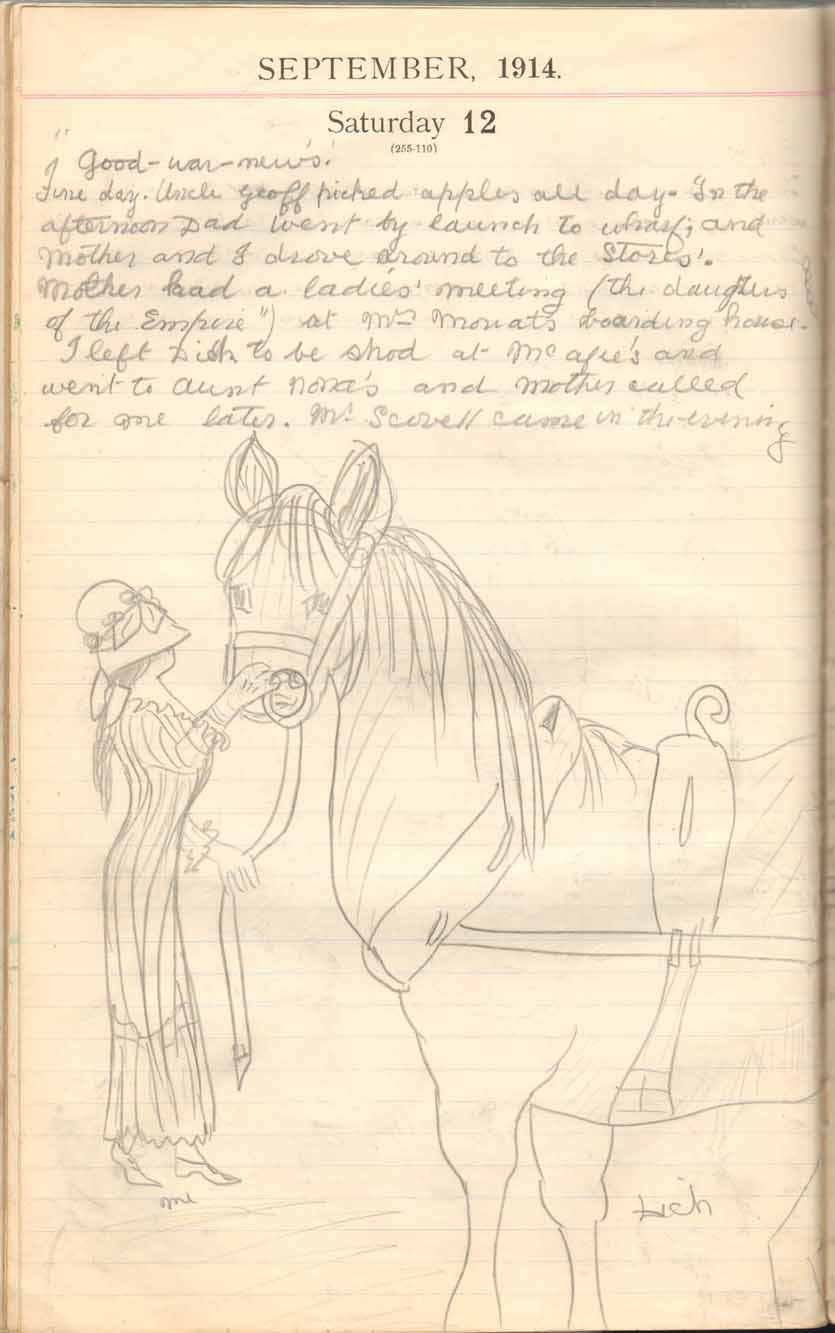 SEPTEMBER, 1914.
Saturday 12
(255-110)
"Good-war-news'.
Fine day. Uncle Geoff picked apples all day. In the
afternoon Dad went by launch to wharf; and
Mother and I drove around to the Stores'.
Mother had a ladies' meeting (the daughters
of the Empire") at Mrs Mouat's boarding house.
I left Dick to be shod at Mc afee's and
went to Aunt Nona's and Mother called
for me later. Mr. Scovell came in the evening
me
Dick